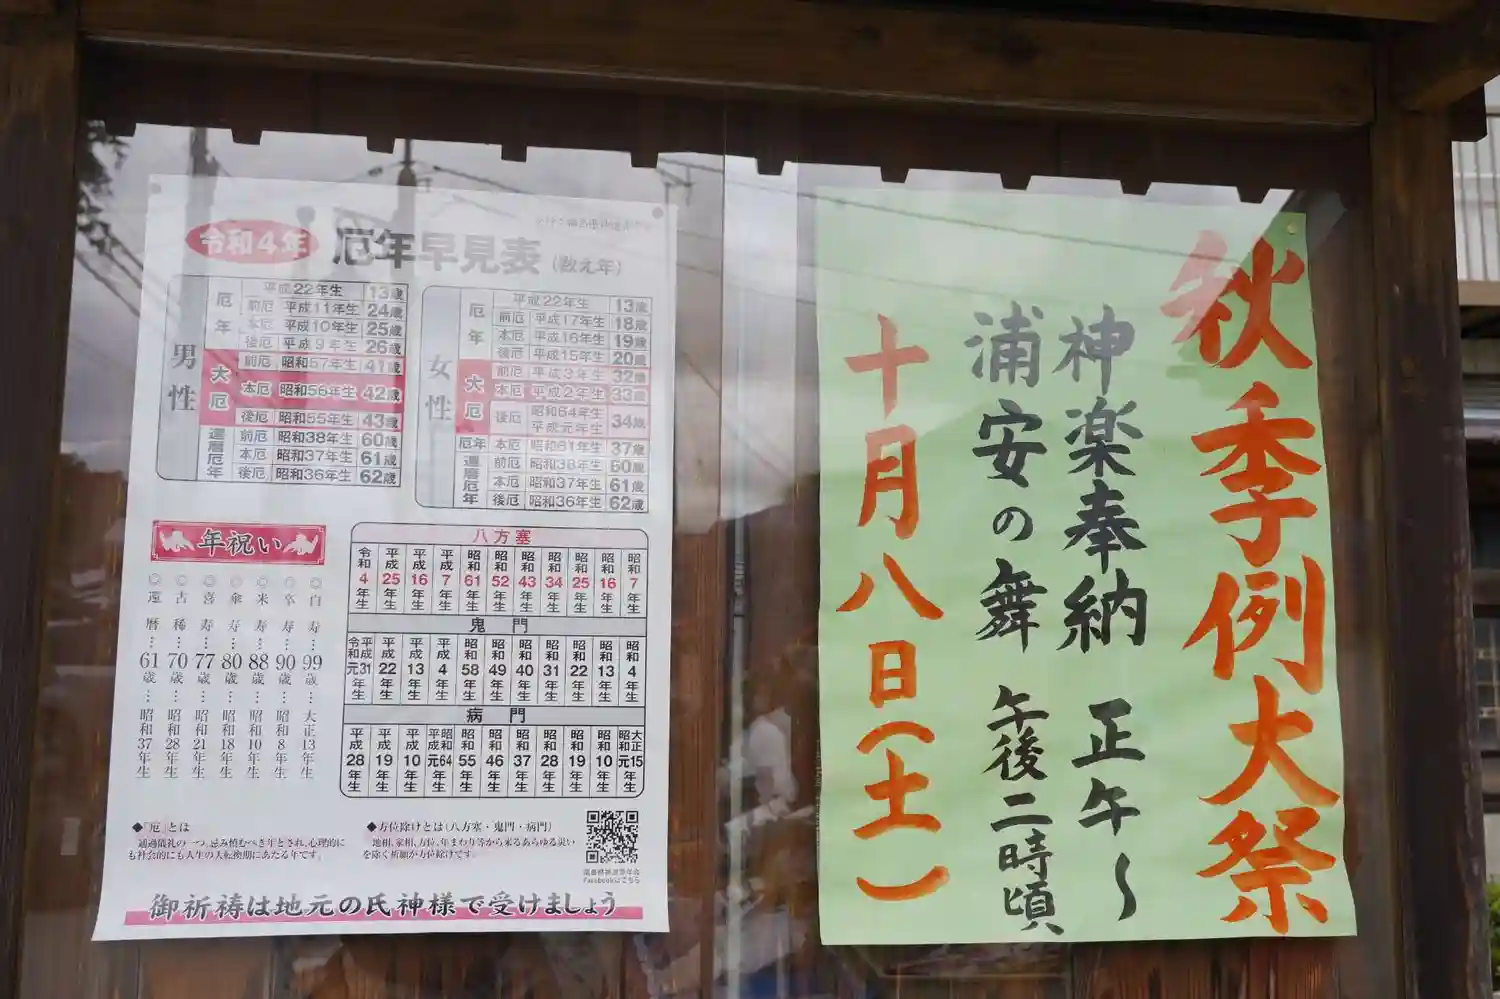 令和4年 厄年早見表(数え年)
男性
厄年 平成22年生 13歳
前厄 平成11年生 24歳
本厄 平成10年生 25歳
後厄 平成9年生 26歳
大厄 前厄 昭和57年生 41歳
本厄 昭和56年生 42歳
後厄 昭和55年生 43歳
還暦厄年 前厄 昭和38年生 60歳
本厄 昭和37年生 61歳
後厄 昭和36年生 62歳
女性
厄年 平成22年生 13歳
前厄 平成17年生 18歳
本厄 平成16年生 19歳
後厄 平成15年生 20歳
大厄 前厄 平成3年生 32歳
本厄 平成2年生 33歳
後厄 昭和64年生 平成元年生 34歳
厄年 本厄 昭和61年生 37歳
還暦厄年 前厄 昭和38年生 60歳
本厄 昭和37年生 61歳
後厄 昭和36年生 62歳
年祝い
◎白寿…99歳…大正13年生
◎卒寿…90歳…昭和8年生
◎米寿…88歳…昭和10年生
◎傘寿…80歳…昭和18年生
◎喜寿…77歳…昭和21年生
◎古稀…70歳…昭和28年生
◎還暦…61歳…昭和37年生
八方塞
令和4年生 平成25年生 平成16年生 平成7年生 昭和61年生 昭和52年生 昭和43年生 昭和34年生 昭和25年生 昭和16年生 昭和7年生
鬼門
令和元平成31年生 平成22年生 平成13年生 平成4年生 昭和58年生 昭和49年生 昭和40年生 昭和31年生 昭和22年生 昭和13年生 昭和4年生
病門
平成28年生 平成19年生 平成10年生 平成元昭和64年生 昭和55年生 昭和46年生 昭和37年生 昭和28年生 昭和19年生 昭和10年生 昭和元大正15年生
◆「厄」とは
通過儀礼の一つ。忌み慎むべき年とされ、心理的に
も社会的にも人生の大転換期にあたる年です。
◆方位除けとは(八方塞・鬼門・病門)
地相、家相、方位、年まわり等から来るあらゆる災い
を除く祈願が方位除けです。
Facebookはこちら
御祈祷は地元の氏神様で受けましょう
秋季例大祭
神楽奉納 正午〜
浦安の舞 午後二時頃
十月八日(土)